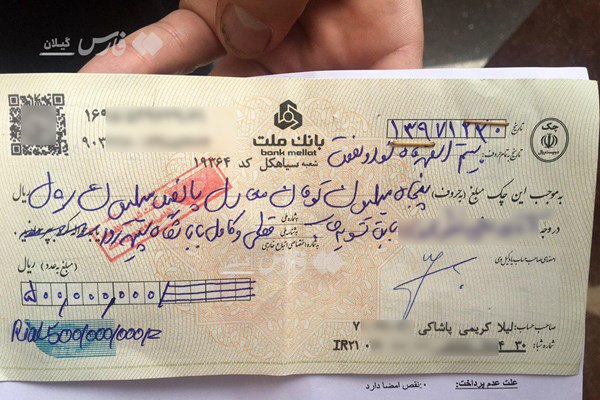 فارس گیلان
۱۶۹
۹۰۳
بانک ملت
bank mellat
شعبه سیاهکل کد ۱۹۳۶۴
چک
تاریخ ۱۳۹۷۱۲۳۰
تاریخ به تمام حروف: بیستم اسفند ماه نود و هفت
به موجب این چک مبلغ (به حروف) پنجاه میلیون تومان معادل پانصد میلیون ریال ریال
در وجه
بابت تسویه حساب قطعی و کامل با باشگاه سپیدرود
به شماره ملی
به شماره اختصاصی اتباع خارجی
(مبلغ به عدد) ریال
۵۰۰,۰۰۰,۰۰۰/
Rial 500/000/000/
فارس گیلان
صاحب حساب: لیلا کریمی پاشاکی ۷
شماره شبا: ۳۰ ۴ IR۲۱ ۰
علت عدم پرداخت: ۰: نقص امضا دارد